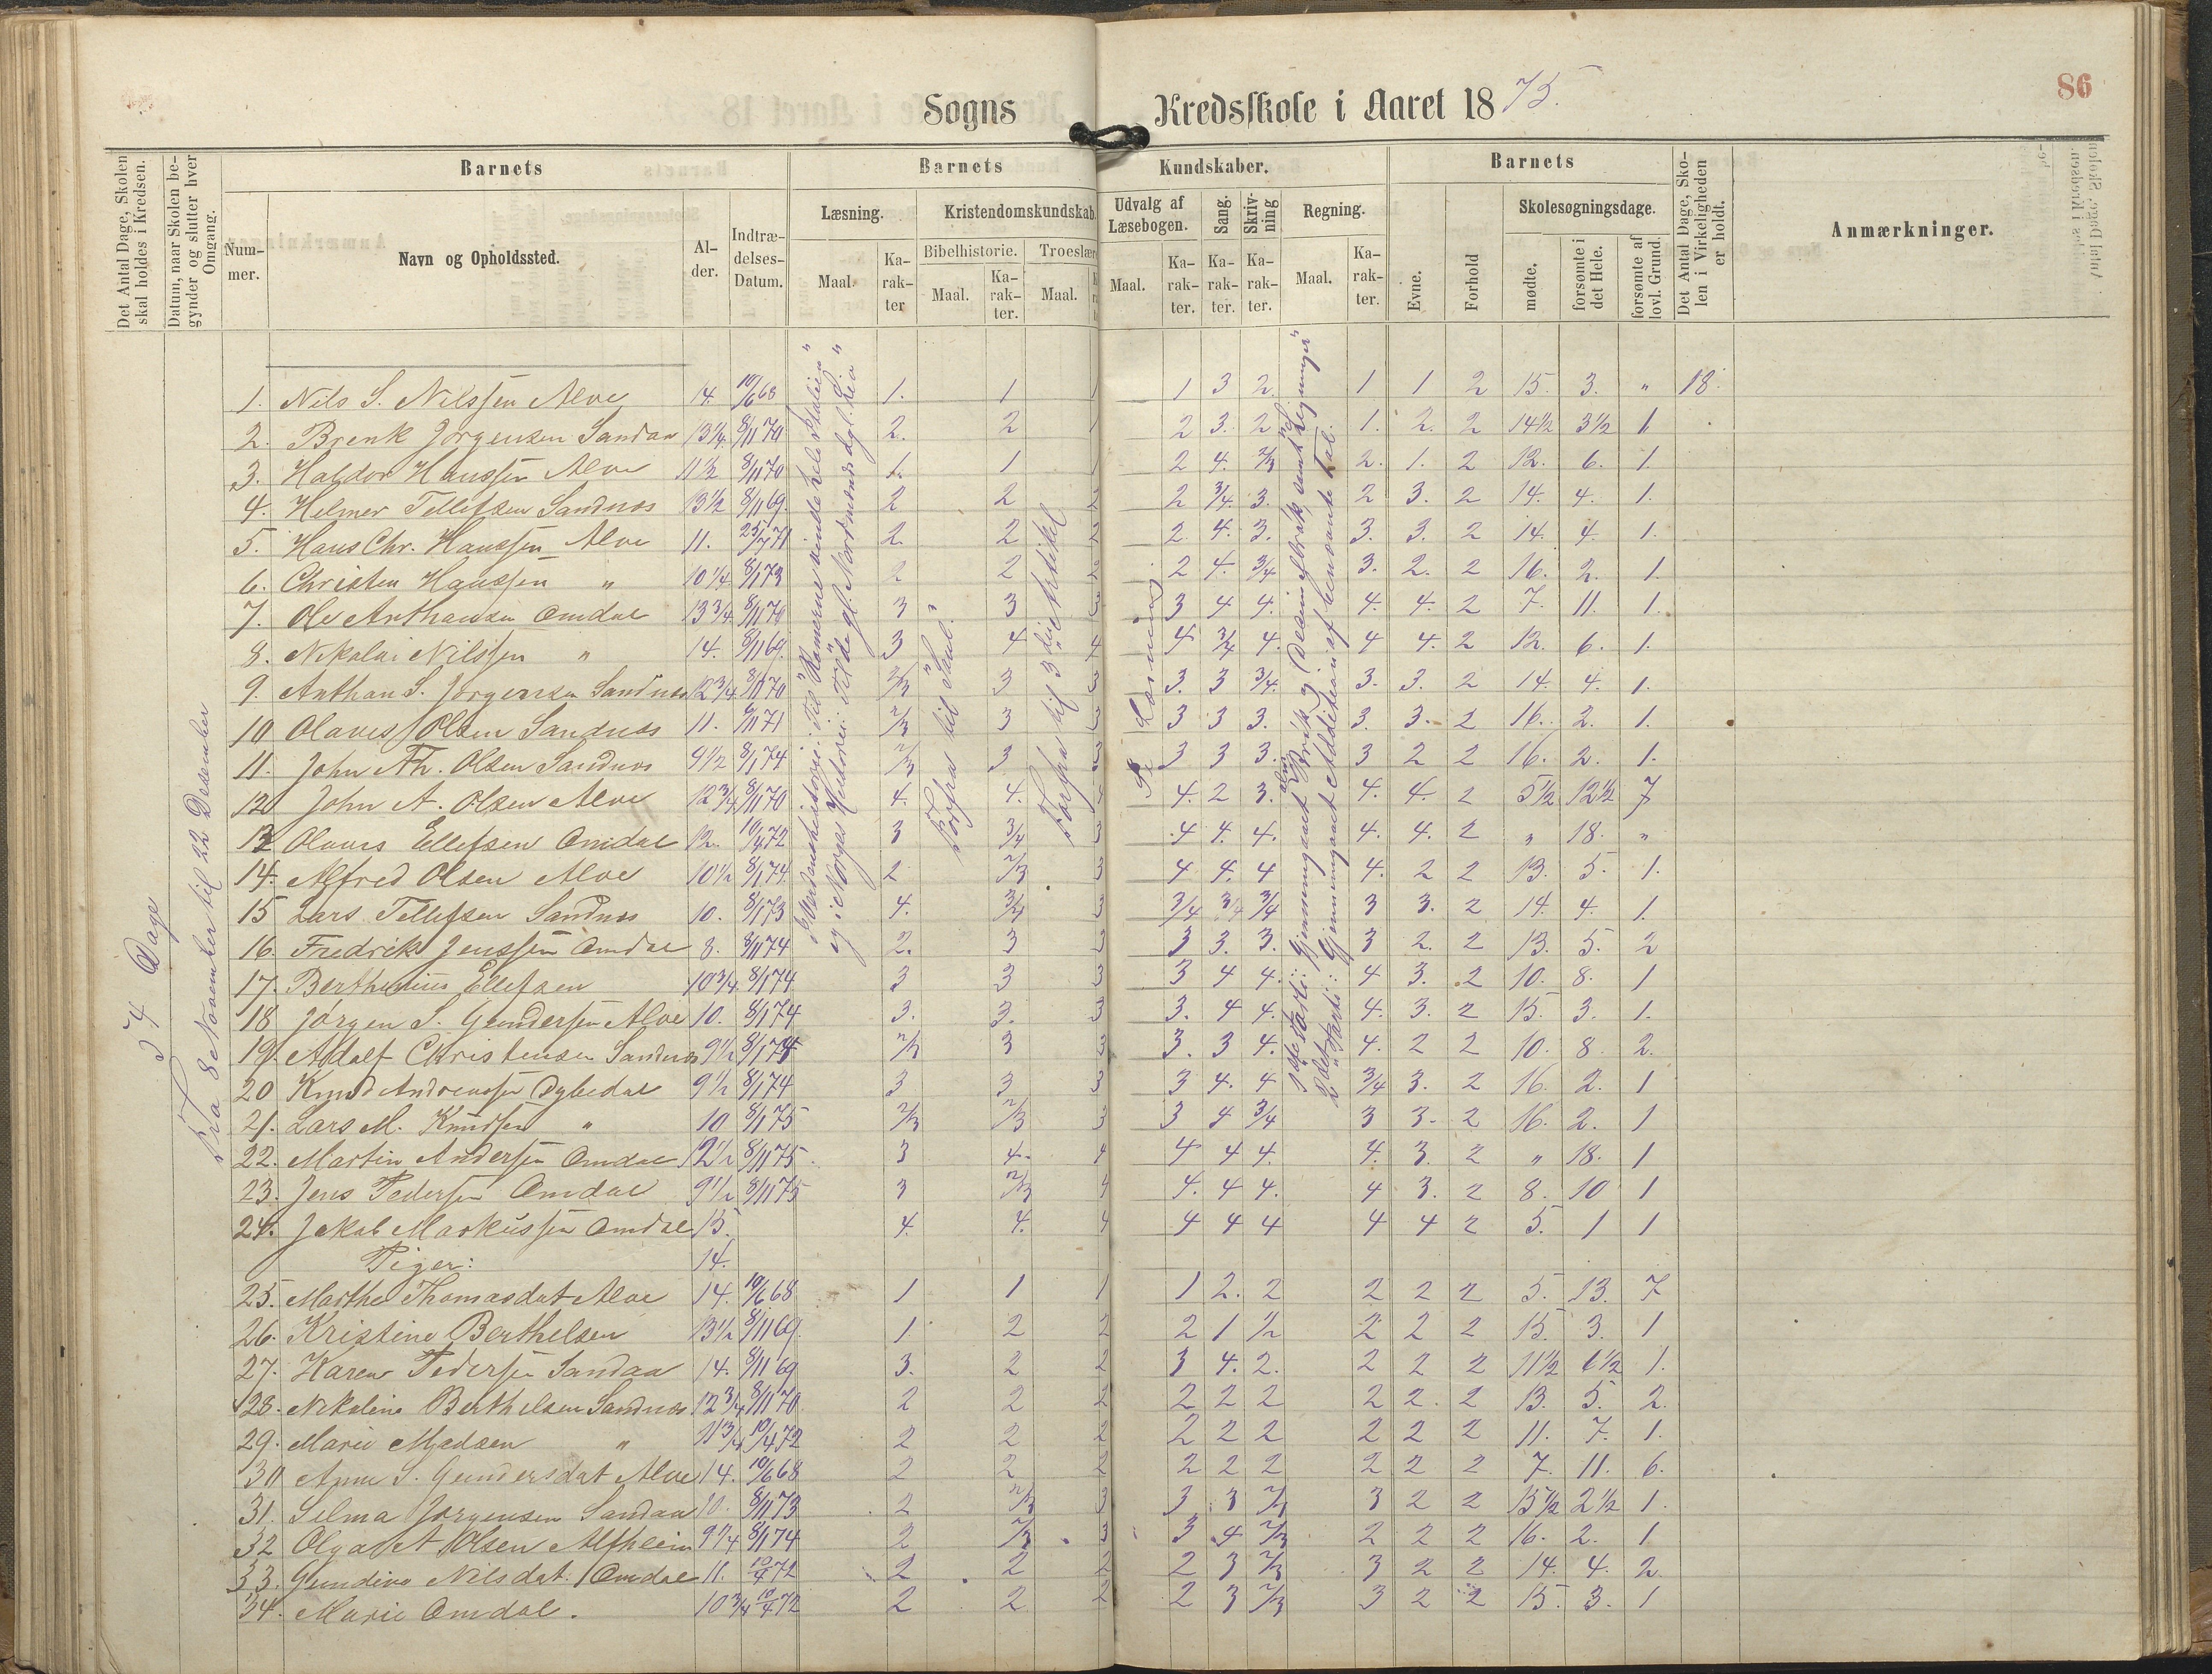 86
Sogns Kredsskole i Aaret 1875.
Det Antal Dage, Skolen skal holdes i Kredsen.
Datum, naar Skolen begynder og slutter hver Omgang.
Barnets
Nummer.
Navn og Opholdssted.
Alder.
Indtrædelses-Datum.
Barnets Kundskaber.
Læsning.
Maal.
Karakter
Kristendomskundskab.
Bibelhistorie.
Maal.
Karakter.
Troeslær
Maal.
Udvalg af Læsebogen.
Maal.
Karakter.
Sang.
Karakter.
Skrivning
Karakter.
Regning.
Maal.
Karakter.
Barnets
Evne.
Forhold
Skolesøgningsdage.
mødte.
forsømte i det Hele.
forsømte af lovl. Grund.
Det Antal Dage, Skolen i Virkeligheden er holdt.
Anmærkninger.
34 Dage
Fra 8 November til 22 Desember
Verdenshistorie: Til "Romerne vinde hele Italien"
og i Norges Historie: Til
Forfra til "Saul"
Forfra til 3die Artikel
Læsning
1. Nils S. Nilssen Alve 14. 10/6 68 1. 1 1 1 3 2 1 1 2 15. 3. " 18.
2. Brenk Jørgensen Sandaa 13¼ 8/11 70 2. 2 1 2 3. 2 1. 2. 2 14½ 3½ 1.
3. Haldor Hanssen Alve 11½ 8/11 70 1. 1 1 2 4. 2/3 2. 1. 2 12. 6. 1.
4. Helmer Tellefsen Sandnes 13½ 8/11 69. 2 2 2 2 3/4 3. 2 3. 2 14. 4. 1.
5. Hans Chr. Hanssen Alve 11. 25/7 71 2. 2 2 2. 4. 3. 3. 3. 2 14. 4. 1.
6. Christen Hanssen " 10¼ 8/1 73 2 2 2 2 4. 3/4 3. 2. 2 16. 2. 1.
7. Ole Anthansen Omdal 13¾ 8/11 70 3 3 3 3 4 4. 4. 4. 2 7. 11. 1.
8. Nikolai Nilssen " 14. 8/11 69. 3 4 4 4 3/4 4. 4 4. 2 12. 6. 1.
9. Anthan S. Jørgensen Sandnes 12¾ 8/11 70 2/3 3 3 3. 3 3/4. 3. 3. 2 14. 4. 1.
10 Olaves Olsen Sandnes 11. 9/11 71 2/3 3 3 3 3 3. 3. 3. 2 16. 2. 1.
11. John Th. Olsen Sandnes 9½ 8/1 74 2/3 3 3 3 3 3. 3 2 2 16. 2. 1.
12 John A. Olsen Alve 12¾ 8/11 70 4. 4. 4. 2 3. 4. 4. 2 5½ 12½ 7
13 Olaves Ellefsen Omdal 12. 10/4 72 3 3/4 3 4 4. 4. 4. 4. 2 " 18. "
14. Alfred Olsen Alve 10½ 8/1 74. 2 2/3 3 4 4. 4 4. 2 2 13. 5. 1.
15 Lars Tellefsen Sandnes 10. 8/1 73 4. 3/4 3 3/4 3/4 3/4 3 3. 2 14. 4. 1.
16. Fredrik Jenssen Omdal 8. 8/11 74 2. 3 3 3 3. 3. 3 2. 2 13. 5. 2
17. Berthinius Ellefsen 10¾ 8/1 74 3 3 3 3 4 4. 4 3. 2 10. 8. 1
18 Jørgen S. Gundersen Alve 10. 8/1 74 3. 3. 3 3. 4 4. 4. 3. 2 15. 3. 1.
19. Adolf Christensen Sandnes 9½ 8/1 74 2/3 3 3 3. 3 4. 4. 2 2 10. 8. 2.
20 Knud Andreassen Dybedal 9½ 8/1 74 3 3 3 3 4. 4 3/4 3. 2 16. 2. 1
21. Lars M. Knudsen " 10 8/1 75 2/3 2/3 3 3 4 3/4 3 3. 2 16. 2. 1
22. Martin Andersen Omdal 12½ 8/11 75. 3 4. 4 4 4 4. 4. 3. 2 " 18. 1
23. Jens Pedersen Omdal 9½ 8/11 75 3 2/3 4 4. 4 4. 4 3. 2 8. 10 1
24. Jakob Markussen Omdal 15. 4. 4. 4 4 4 4 4 4 2 5. 1 1
Piger: 14.
25. Marthe Thomasdat Alve 14. 10/6 68 1 1 1 1 2. 2 2 2 2 5. 13. 7
26. Kristine Berthelsen 13½ 8/11 69. 1. 2 2 2 1 ½ 2 2 2 15. 3. 1
27. Karen Pedersen Sandaa 14. 8/11 69 3. 2 2 3 4. 2. 2 2 2 11½ 6½ 1.
28. Nikoline Berthelsen Sandnes 12¾ 8/11 70. 2 2 2 2 2 2 2 2. 2 13. 5. 2.
29. Marie Madsen " 11¾ 10/4 72 2 2 2 2 2 2 2 2 2 11. 7. 1.
30 Anne S. Gundersdat Alve 14. 10/6 68 2 2 2 2 2 2 2 2 2 7. 11. 6.
31. Selma Jørgensen Sandaa 10. 8/11 73 2 2/3 3 3 3 2/3 3 2 2 15½ 2½ 1.
32 Olga A Olsen Alfheim 9¼ 8/1 74 2 2/3 3 3 4 2/3 2 2 2 16. 2. 1
33. Gundine Nilsdat. Omdal 11. 10/4 72 2 2 2 2 3 2/3 3 2 2 14. 4. 2.
34. Marie Omdal. 10¾ 10/4 72 2 2 2 2 3 2/3 3 2 2 15. 3. 1